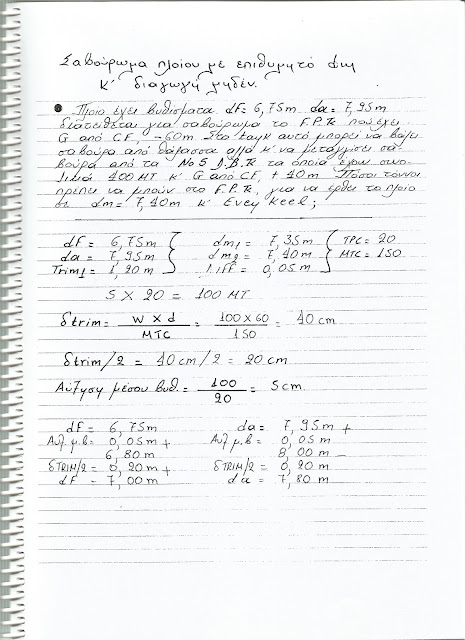 Σαβούρωμα πλοίου με επιθυμητό dm
κ' διαγωγή μηδέν.
Πλοίο έχει βυθίσματα dF= 6,75m da= 7,95m
διατίθεται για σαβούρωμα το F.P.Tk που έχει
G από CF, -60m Στο tank αυτό μπορεί να βάλει
σαβούρα από θάλασσα αλλά κ' να μεταγγίσει σα-
βούρα από τα No 5 D.B.Tk τα οποία έχουν συνο-
λικά 400 MT κ' G από CF, + 40m Πόσοι τόννοι
πρέπει να μπούν στο F.P.Tk, για να έρθει το πλοίο
σε dm= 7,40m κ' Evey Keel;
dF= 6,75m dm1 = 7,35m TPC= 20
da= 7,95m dm2 = 7,40m MTC= 150
Trim1= 1,20m Diff= 0,05m
5 X 20 = 100 MT
δtrim= W x d / MTC = 100 x 60 / 150 = 40 cm
δtrim/2 = 40 cm/2 = 20 cm
Αύξηση μέσου βυθ.= 100 / 20 = 5cm
dF= 6,75m da= 7,95m +
Αυξ μ.β= 0,05m + Αυξ μ.β= 0,05m
6,80m 8,00m -
δTRIM/2= 0,20m + δTRIM/2= 0,20m
dF = 7,00m da= 7,80m